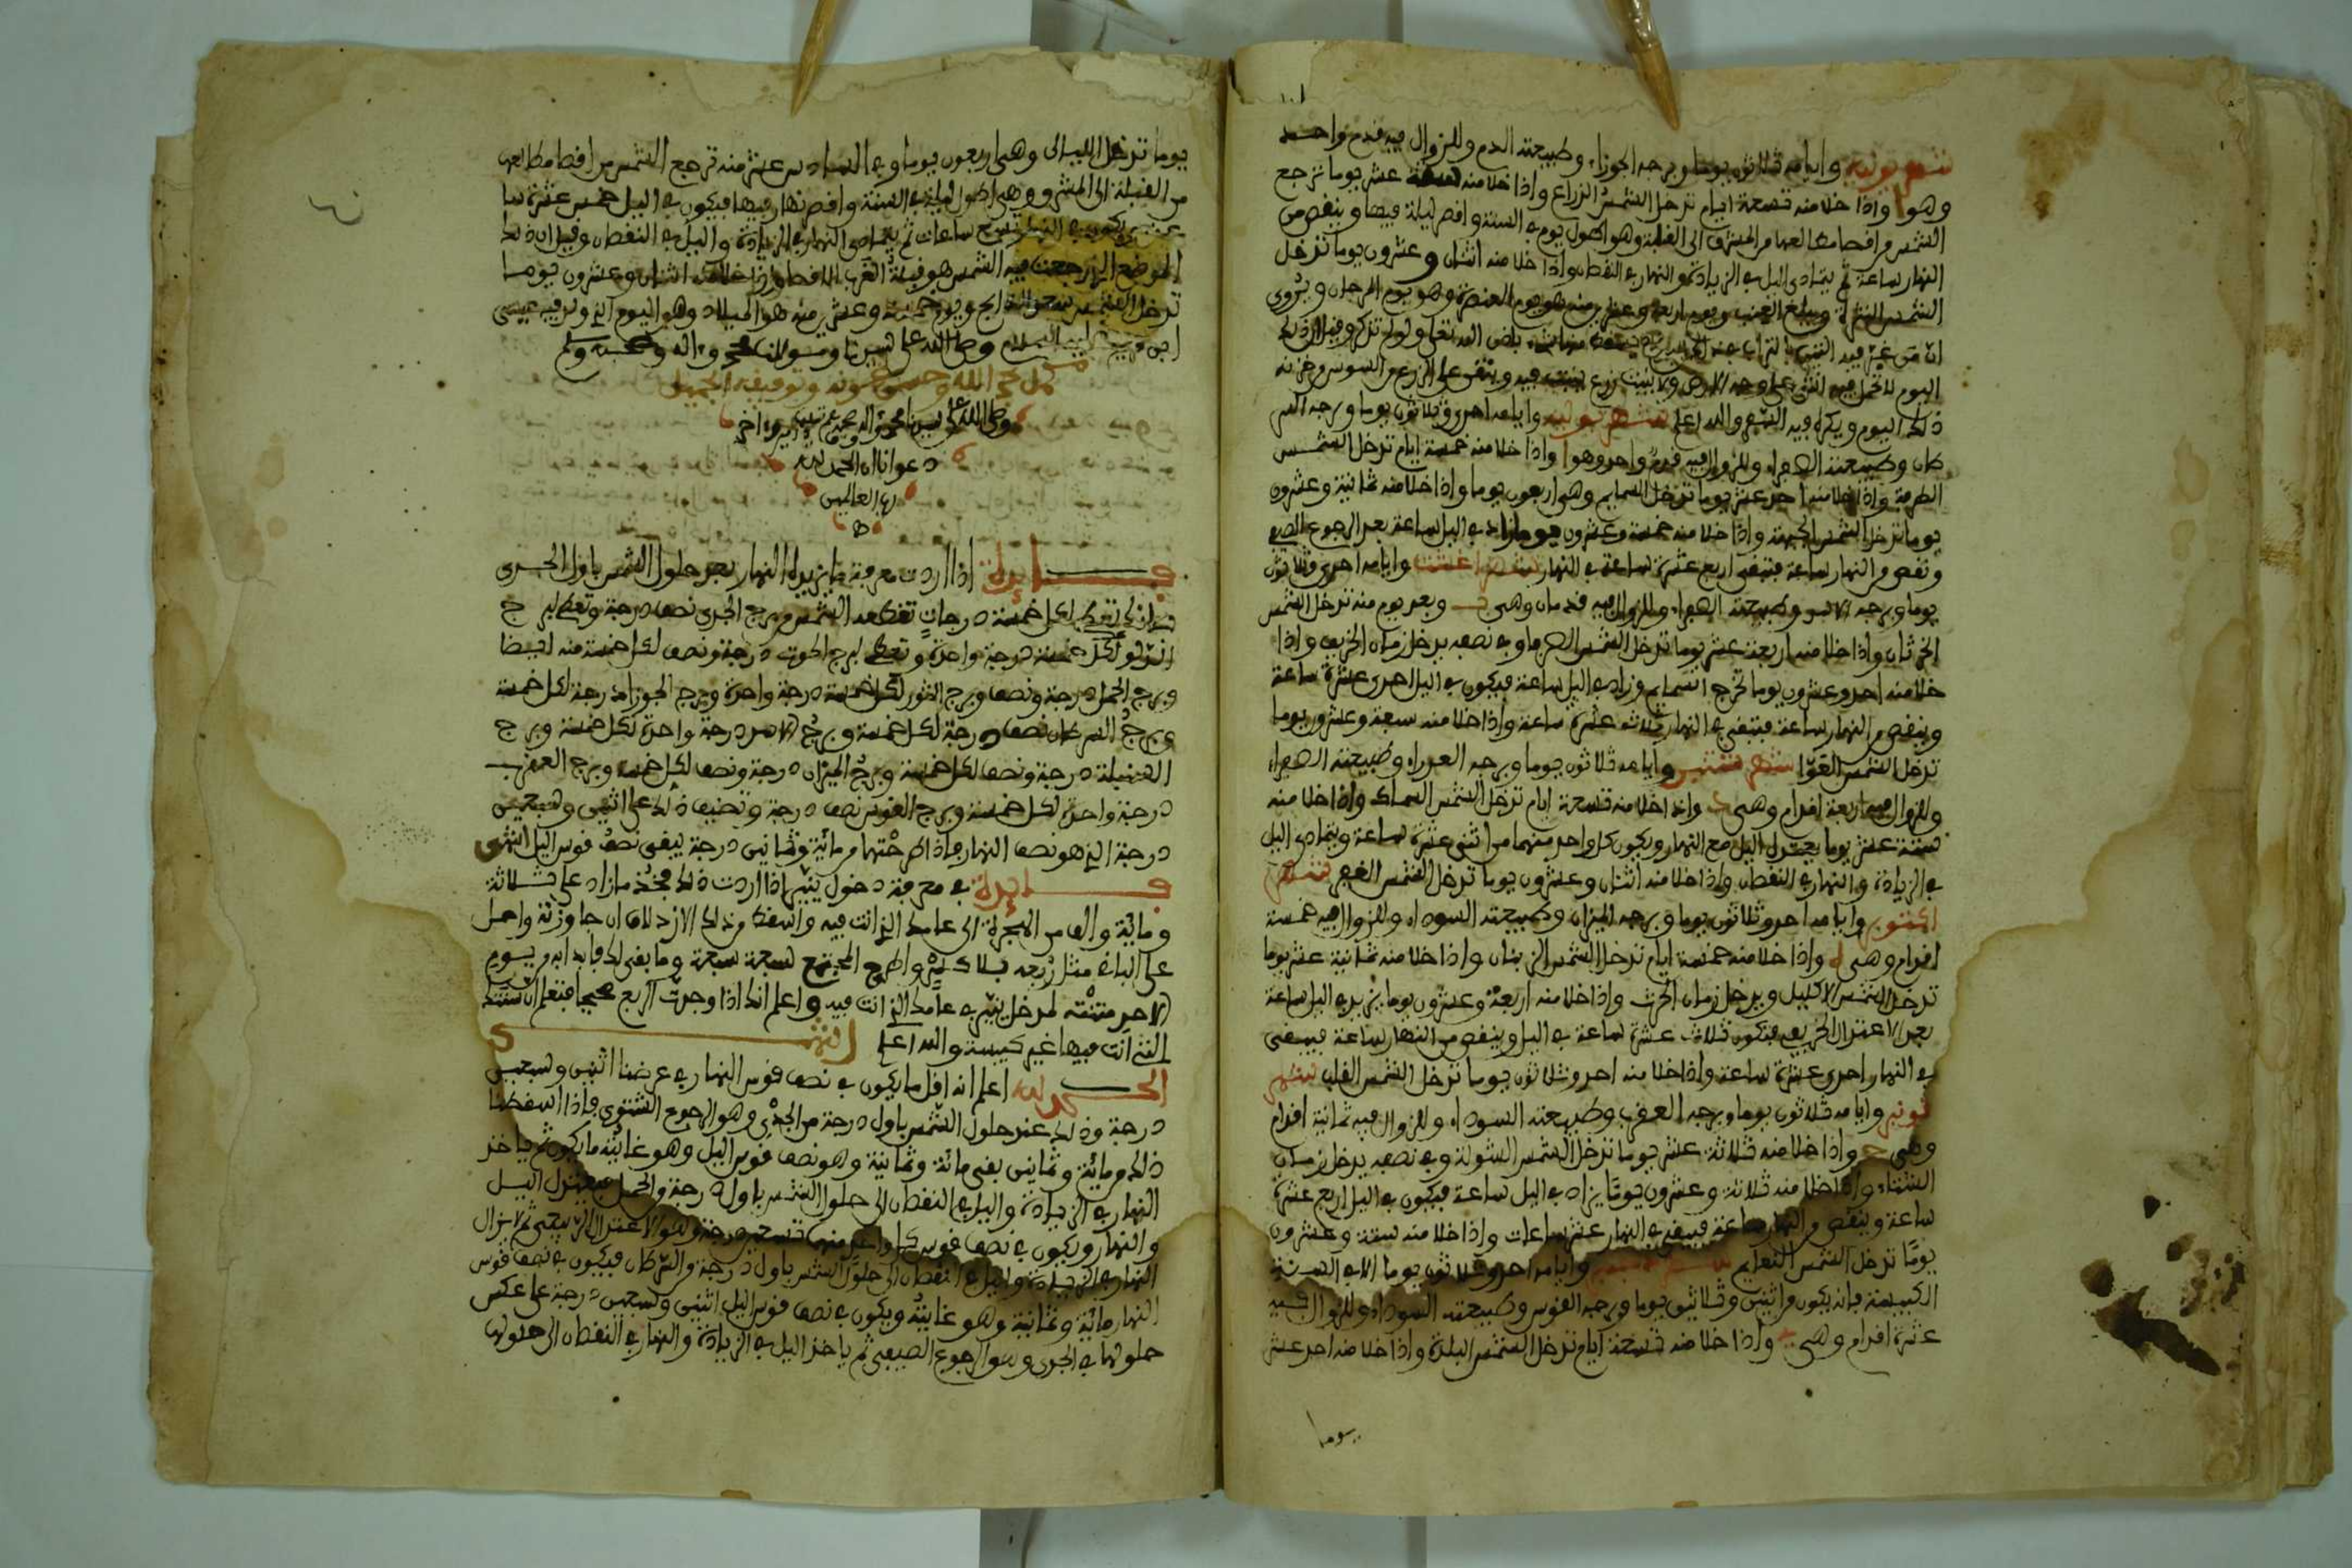 شهر يونيه وايامه ثلاثون يوما وبرجه الجوزاء وطبيعته الدم وللزوال فيه قدم واحد
وهو ا واذا خلا منه تسعة ايام تدخل الشمس الذراع واذا خلا منه ستة عشر يوما ترجع
الشمس من اقصا مطالعها من المشرق الى القبلة وهو اطول يوم في السنة واقصر ليلة فيها وينقص من
النهار ساعة ثم يتمادى اليل في الزيادة والنهار في النقصان واذا خلا منه اثنان وعشرون يوما تدخل
الشمس النثرة ويطلع العنب ويوم اربعة وعشرين منه هو يوم العنصرة وهو يوم المرجان ويروى
ان من غير فيه التين بالتراب عند باذن الله تعلى ولو لم تذكر وقيل ان ذلك
اليوم لا تحمل فيه انثى على وجه الارض ولا ينبت زرع فيه وينقى على الزرع من السوس وخزنه
ذلك اليوم ويكره فيه السفر والله اعلم شهر يوليه وايامه احد وثلاثون يوما وبرجه السر
طان وطبيعته الصفراء وللزوال فيه قدم واحد وهو ا واذا خلا منه خمسة ايام تدخل الشمس
الطرفة واذا خلا منه احد عشر يوما تدخل السمايم وهي اربعون يوما واذا خلا منه ثمانية وعشرون
يوما تدخل الشمس الجبهة واذا خلا منه خمسة وعشرون يوما زاد في اليل ساعة بعد الرجوع الصيفي
ونقص من النهار ساعة فتبقى اربع عشرة ساعة في النهار شهر اغشت وايامه احد وثلاثون
يوما وبرجه الاسد وطبيعته الصفراء وللزوال فيه قدمان وهي ب وبعد يوم منه تدخل الشمس
الخرثان واذا خلا منه اربعة عشر يوما تدخل الشمس الصرفة وفي نصفه يدخل زمان الخريف واذا
خلا منه احد وعشرون يوما تخرج السمايم وزاد في اليل ساعة فيكون في اليل احدى عشرة ساعة
وينقص من النهار ساعة فيبقى في النهار ثلاث عشرة ساعة واذا خلا منه سبعة وعشرون يوما
تدخل الشمس العوا شهر شتنبر وايامه ثلاثون يوما وبرجه العذراء وطبيعته الصفراء
وللزوال فيه اربعة اقدام وهي د واذا خلا منه تسعة ايام تدخل الشمس السماك واذا خلا منه
ستة عشر يوما يعتدل اليل مع النهار ويكون كل واحد منهما من اثني عشرة ساعة ويتمادى اليل
في الزيادة والنهار في النقصان واذا خلا منه اثنان وعشرون يوما تدخل الشمس الغفر شهر
اكتوبر وايامه احد وثلاثون يوما وبرجه الميزان وطبيعته السوداء وللزوال فيه خمسة
اقدام وهي ه واذا خلا منه خمسة ايام تدخل الشمس الزبنان واذا خلا منه ثمانية عشر يوما
تدخل الشمس الاكليل ويدخل زمان الحرث واذا خلا منه اربعة وعشرون يوما يزيد في اليل ساعة
بعد الاعتدال الخريفي فيكون ثلاث عشرة ساعة في اليل وينقص من النهار ساعة فيبقى
في النهار احدى عشرة ساعة واذا خلا منه احد وثلاثون يوما تدخل الشمس القلب شهر
نونبر وايامه ثلاثون يوما وبرجه العقرب وطبيعته السوداء وللزوال فيه ثمانية اقدام
وهي ح واذا خلا منه ثلاثة عشر يوما تدخل الشمس الشولة وفي نصفه يدخل زمان
الشتاء واذا خلا منه ثلاثة وعشرون يوما يزاد في اليل ساعة فيكون في اليل اربع عشرة
ساعة وينقص من النهار ساعة فيبقى في النهار عشر ساعات واذا خلا منه ستة وعشرون
يوما تدخل الشمس النعايم شهر دجنبر وايامه احد وثلاثون يوما الا في السنة
الكبيسة فانه يكون من اثنين وثلاثين يوما وبرجه القوس وطبيعته السوداء وللزوال فيه
عشرة اقدام وهي ي واذا خلا منه تسعة ايام تدخل الشمس البلدة واذا خلا منه احد عشر
يوما
يوما تدخل الليالى وهي اربعون يوما وفي السادس عشر منه ترجع الشمس من اقصا مطالعها
من القبلة الى المشرق وهي اطول ليلة في السنة واقصر نهار فيها فيكون في اليل خمس عشرة سا
عة ويكون في النهار تسع ساعات ثم يتمادى النهار في الزيادة واليل في النقصان وقيل ان ذلك
الموضع الذي رجعت فيه الشمس هو قبلة الغرب الاقصا واذا خلا منه اثنان وعشرون يوما
تدخل الشمس سعد الذابح ويوم خمسة وعشرين منه هو الميلاد وهو اليوم الذي ولد فيه عيسى
ابن مريم عليه السلام وصلى الله على سيدنا ومولانا محمد وءاله وصحبه وسلم
كمل بحمد الله وحسن عونه وتوفيقه الجميل
وصلى الله على سيدنا محمد واله وصحبه وسلم تسليما وءاخر
دعوانا ان الحمد لله
رب العالمين
فايدة اذا اردت معرفة ما يزيده النهار بعد حلول الشمس باول الجدى
فانك تعطى لكل خمسة درجات تقطعه الشمس من برج الجدى نصف درجة وتعطى لبرج
الدلو لكل خمسة درجة واحدة وتعطى لبرج الحوت درجة ونصف لكل خمسة منه ايضا
وبرج الحمل درجة ونصف وبرج الثور لكل خمسة درجة واحدة وبرج الجوزاء درجة لكل خمسة
وبرج السرطان نصف درجة لكل خمسة وبرج الاسد درجة واحدة لكل خمسة وبرج
السنبلة درجة ونصف لكل خمسة وبرج الميزان درجة ونصف لكل خمسة وبرج العقرب
درجة واحدة لكل خمسة وبرج القوس نصف درجة وتضيف ذلك على اثنين وسبعين
درجة الذي هو نصف النهار فاذا طرحتها من مائة وثمانين درجة يبقى نصف قوس اليل انتهى
فايدة في معرفة دخول ينير اذا اردت ذلك فخذ ما زاد على ثلاثة
ومائة والف من الهجرة الى عامك الذي انت فيه واسقط من ذلك الازدلاف ان جاوزته واحمل
على الباقى مثل ربعه بلا كسر واطرح المجتمع سبعة سبعة وما بقى لك فابدا به من يوم
الاحد منتهى لمدخل ينير في عامك الذي انت فيه واعلم انك اذا وجدت الربع صحيحا فتعلم ان سنتك
التي انت فيها غير كبيسة والله اعلم انتهى
الحمد لله اعلم انه اقل ما يكون في نصف قوس النهار في عرضنا اثنين وسبعين
درجة وذلك عند حلول الشمس باول درجة من الجدي وهو الرجوع الشتوي فاذا اسقطنا
ذلك من مائة وثمانين بقى مائة وثمانية وهو نصف قوس اليل وهو غايته ما يكون ثم ياخذ
النهار في الزيادة واليل في النقصان الى حلول الشمس باول درجة من الحمل فيعتدل اليل
والنهار ويكون في نصف قوس كل واحد منهما تسعين درجة وهو الاعتدال الربيعي ثم لا يزال
النهار في الزيادة واليل في النقصان الى حلول الشمس باول درجة من السرطان فيكون في نصف قوس
النهار مائة وثمانية وهو غايته ويكون في نصف قوس اليل اثنين وسبعين درجة على عكس
حلولها في الجدى وهو الرجوع الصيفي ثم ياخذ اليل في الزيادة والنهار في النقصان الى حلولها